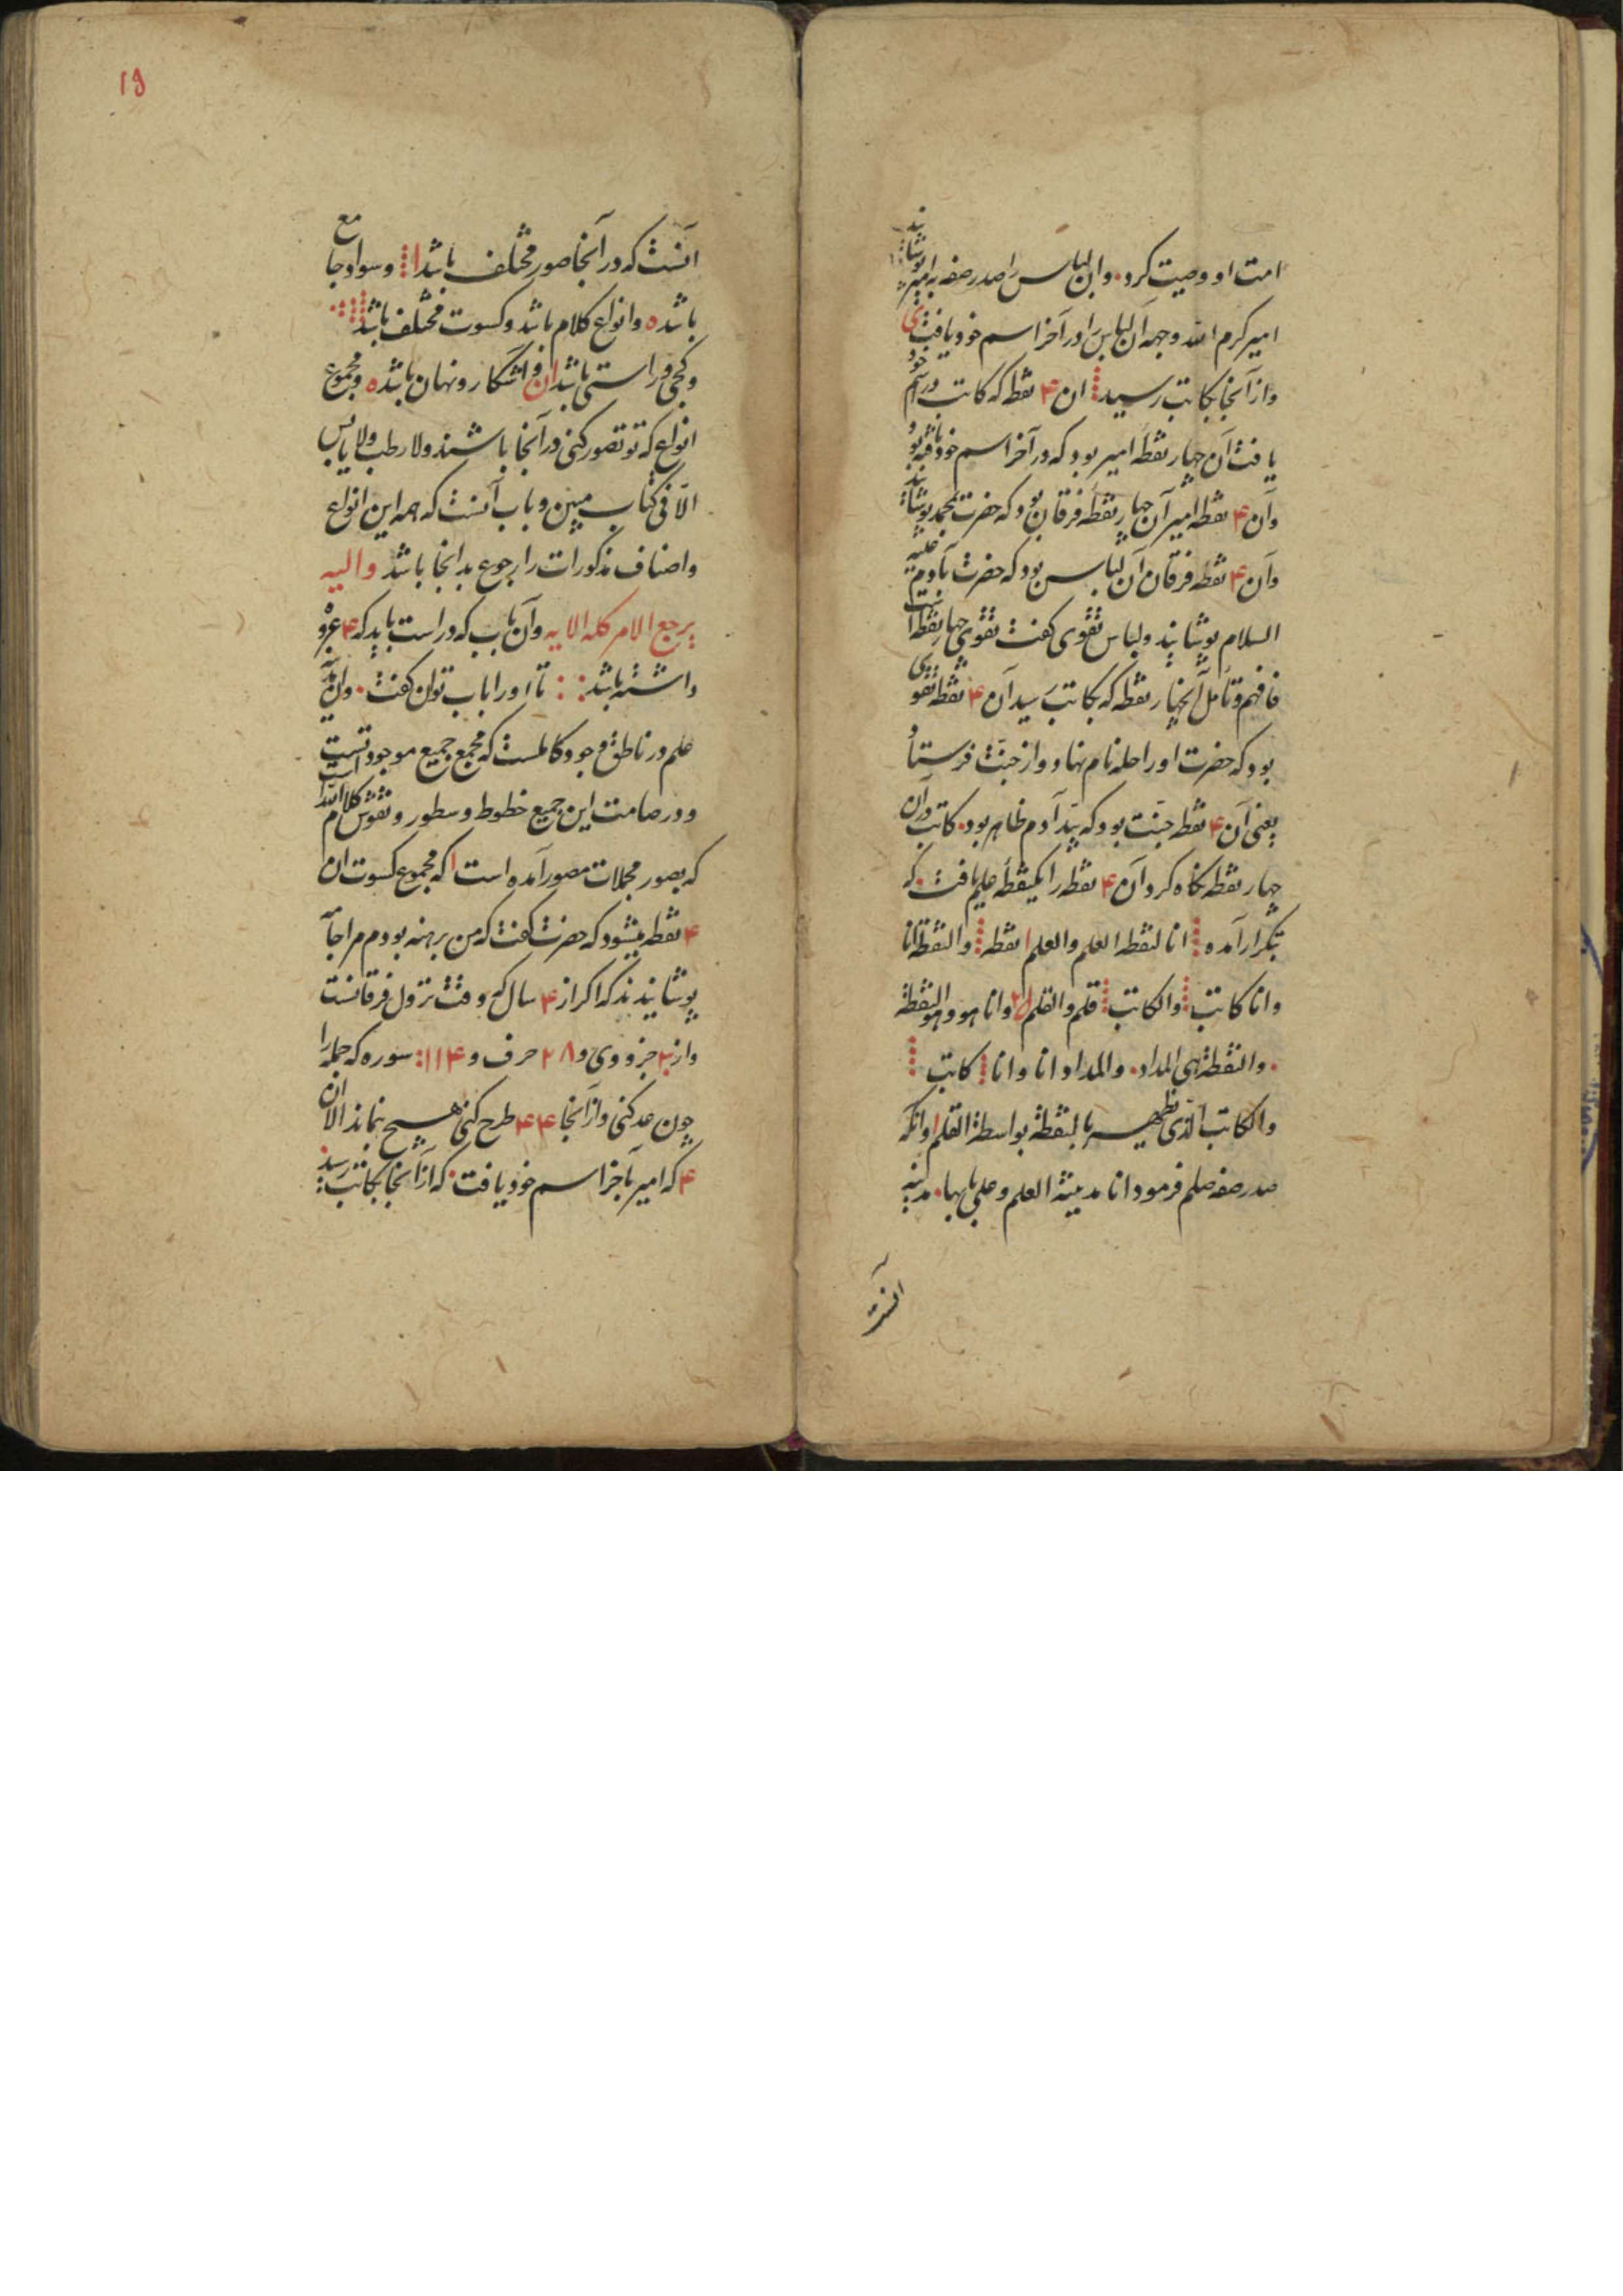 امت او وصیت کرد. وان لباس را صدر صفه بر امیر پوشانید
امیر کرم الله وجهه آن لباس را در آخر اسم خود یافت
و از آنجا بکاتب رسید ان ۴ نقطه که کاتب در اسم خود
یافت آن چهار نقطه امیر بود که در آخر اسم خود یافته بود
و آن ۴ نقطه امیر آن چهار نقطه فرقان بود که حضرت محمد پوشانید
و آن ۴ نقطه فرقان آن لباس بود که حضرت بآدم علیه
السلام پوشانید و لباس تقوی گفت تقوی چهار نقطه است
فافهم و تأمل آنچهار نقطه که بکاتب رسید آن ۴ نقطه تقوی
بود که حضرت او را حله نام نهاد و از جنت فرستاد
یعنی آن ۴ نقطه جنت بود که بید آدم ظاهر بود. کاتب در آن
چهار نقطه نگاه کرد آن ۴ نقطه را یکنقطه علم یافت. که
بتکرار آمده انا لنقطه العلم و العلم ا نقطه و النقطة انا
و انا کاتب و الکاتب قلم و القلم و انا هو و هو النقطة
. و النقطة هی المداد. و المداد انا و انا کاتب
و الکاتب الذی یظهر بالنقطة بواسطة القلم و انکه
صدر صفه صلعم فرمود انا مدینة العلم و علی بابها. مدینه
آنست
۱۹
آنست که در آنجا صور مختلف باشد و سواد جامع
باشد ه و انواع کلام باشد و کسوت مختلف باشد
و کجی و راستی باشد ان و آشکار و نهان باشد ه و مجموع
انواع که تو تصور کنی در آنجا باشند و لا رطب و لا یابس
الا فی کتاب مبین و باب آنست که همه این انواع
و اصناف مذکورات را رجوع بدانجا باشد و الیه
یرجع الامر کله الایه و آن باب که در است باید که ۴
داشته باشد : : تا او را باب توان گفت. و ان
علم در ناطق وجود کاملست که مجمع جمیع موجود تست
و در صامت این جمیع خطوط و سطور و نقوش کلام الله است
که بصور مجملات مصور آمده است ا که مجموع کسوت ان
۴ نقطه میشود که حضرت گفت که من برهنه بودم مرا جامه
پوشانیدند که اگر از ۴ سال که وقت نزول فرقانست
و از جزو وی و ۲۸ حرف و ۱۱۴ : سوره که جمله را
چون عد کنی و از آنجا ۴ ۴ ۴ طرح کنی هیچ نماند الا ان
۴ که امیر بآخر اسم خود یافت. که از آنجا بکاتب رسید